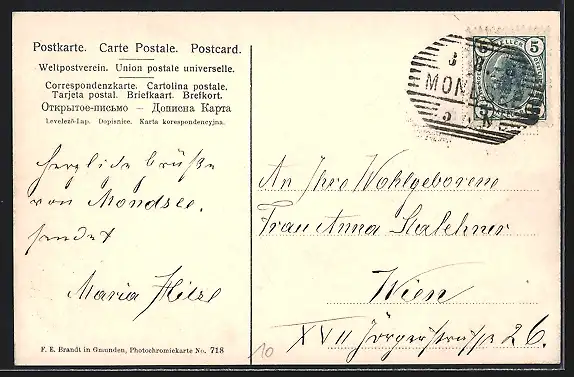 Postkarte. Carte Postale. Postcard.
Weltpostverein. Union postale universelle.
Correspondenzkarte. Cartolina postale.
Tarjeta postal. Briefkaart. Brefkort.
Открытое-письмо – Дописна Карта
Levelező-Lap. Dopisnice. Karta korespondencyjna.
Herzliche Grüße
von Mondsee.
sendet
Maria Hitzl
F. E. Brandt in Gmunden, Photochromiekarte No. 718
5
MOND
An Ihre Wohlgeborene
Frau Anna
Wien
XVII Jörgerstrasse 26.
10